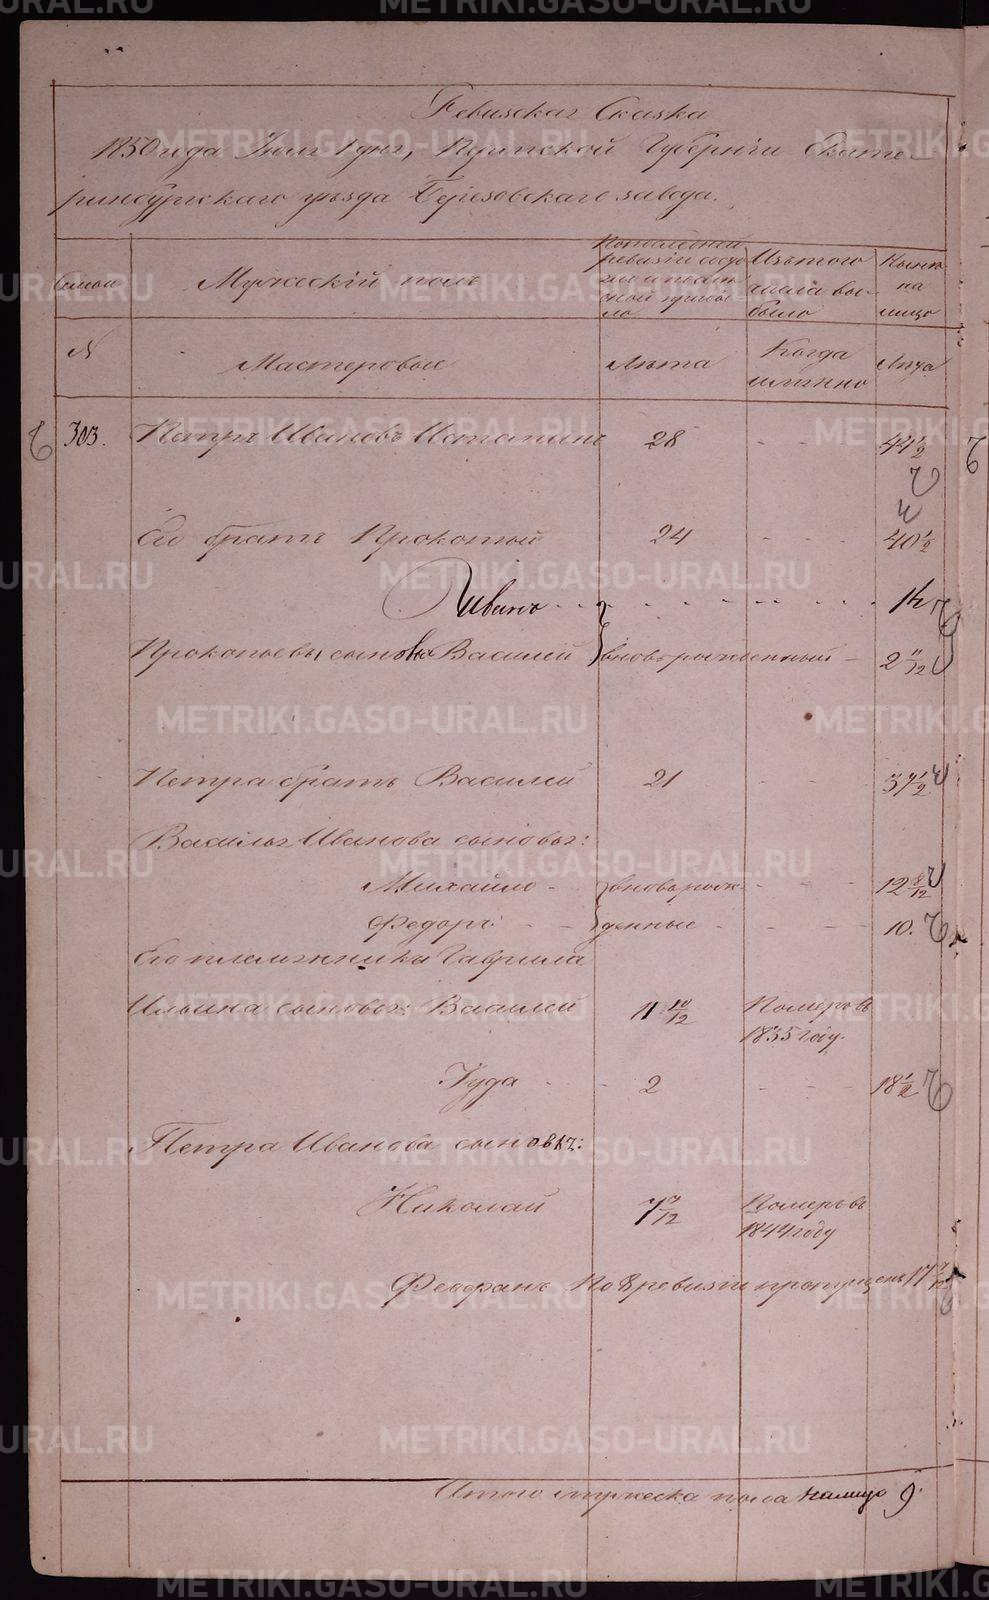 Ревизская Сказка
1850 года Июля 1 дня, Пермской Губернiи Екате-
ринбургскаго уѣзда Березовскаго завода.
Семьи
Мужескiй полъ
По последней
ревизiи состо
было
Изъ того
числа вы-
было
Нынѣ
на
лицо
N
Мастеровые
Лѣта
Когда
имянно
Лѣта
303.
Петръ Ивановъ
28
44 1/2
Его братъ Прокопiй
24
40 1/2
Иванъ
Прокопьевы сыновья Василей
вновьрожденный
2 11/12
Петра братъ Василей
21
37 1/2
Василья Иванова сыновья:
Михайло
вноворож
12 8/12
Федоръ:
денные
10.
Его племянники Гаврила
Ильина сыновья: Василей
11 10/12
Померъ въ
1835 году.
Iуда
2
18 1/2
Петра Иванова сыновья:
Николай
7 7/12
Померъ въ
1844 году
Феофанъ По 8 ревизiи пропущенъ 17
Итого мужеска пола налицо 9.
METRIKI.GASO-URAL.RU